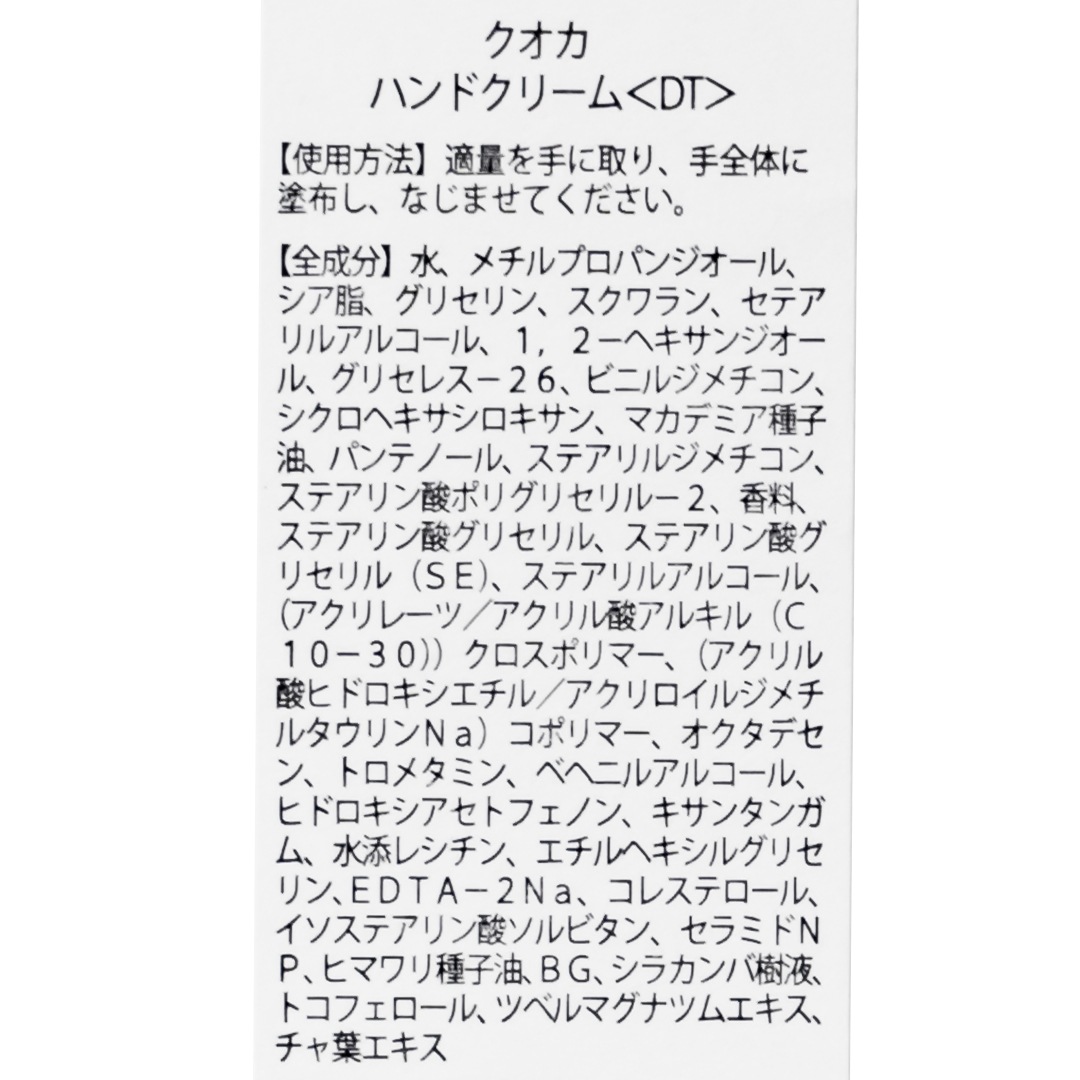 クオカ
ハンドクリーム<DT>
【使用方法】適量を手に取り、手全体に
塗布し、なじませてください。
【全成分】水、メチルプロパンジオール、
シア脂、グリセリン、スクワラン、セテア
リルアルコール、１，２－ヘキサンジオー
ル、グリセレス－２６、ビニルジメチコン、
シクロヘキサシロキサン、マカデミア種子
油、パンテノール、ステアリルジメチコン、
ステアリン酸ポリグリセリル－２、香料、
ステアリン酸グリセリル、ステアリン酸グ
リセリル（ＳＥ）、ステアリルアルコール、
（アクリレーツ／アクリル酸アルキル（Ｃ
１０－３０））クロスポリマー、（アクリル
酸ヒドロキシエチル／アクリロイルジメチ
ルタウリンＮａ）コポリマー、オクタデセ
ン、トロメタミン、ベヘニルアルコール、
ヒドロキシアセトフェノン、キサンタンガ
ム、水添レシチン、エチルヘキシルグリセ
リン、ＥＤＴＡ－２Ｎａ、コレステロール、
イソステアリン酸ソルビタン、セラミドＮ
Ｐ、ヒマワリ種子油、ＢＧ、シラカンバ樹液、
トコフェロール、ツベルマグナツムエキス、
チャ葉エキス